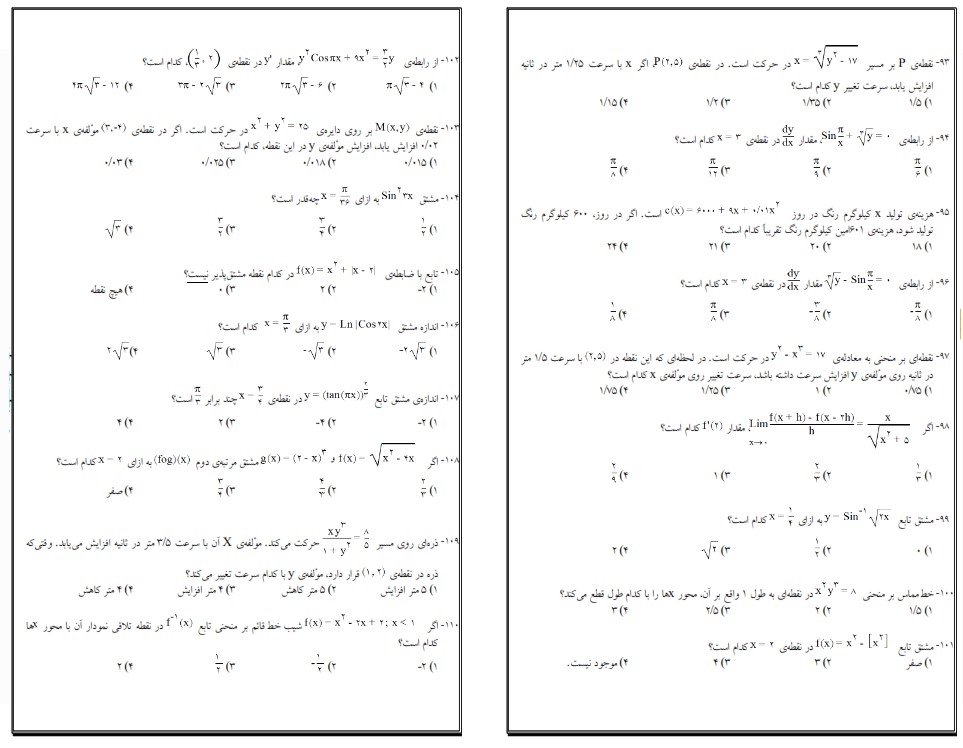 ۹۳- نقطه‌ی P بر مسیر x = ∛(y² - ۱۷) در حرکت است. در نقطه‌ی P(۲,۵)، اگر x با سرعت ۱/۲۵ متر در ثانیه
افزایش یابد، سرعت تغییر y کدام است؟
۱) ۱/۵ ۲) ۱/۳۵ ۳) ۱/۲ ۴) ۱/۱۵
۹۴- از رابطه‌ی Sin π/x + ∛y = ۰، مقدار dy/dx در نقطه‌ی x = ۳ کدام است؟
۱) π/۶ ۲) π/۹ ۳) π/۱۲ ۴) π/۸
۹۵- هزینه‌ی تولید x کیلوگرم رنگ در روز c(x) = ۶۰۰۰ + ۹x + ۰/۰۱x² است. اگر در روز، ۶۰۰ کیلوگرم رنگ
تولید شود، هزینه‌ی ۶۰۱امین کیلوگرم رنگ تقریباً کدام است؟
۱) ۱۸ ۲) ۲۰ ۳) ۲۱ ۴) ۲۴
۹۶- از رابطه‌ی ∛y - Sin π/x = ۰ مقدار dy/dx در نقطه‌ی x = ۳ کدام است؟
۱) -π/۸ ۲) -۳/۸ ۳) π/۸ ۴) ۱/۸
۹۷- نقطه‌ای بر منحنی به معادله‌ی y² - x³ = ۱۷ در حرکت است. در لحظه‌ای که این نقطه در (۲,۵) با سرعت ۱/۵ متر
در ثانیه روی مؤلفه‌ی y افزایش سرعت داشته باشد، سرعت تغییر روی مؤلفه‌ی x کدام است؟
۱) ۰/۷۵ ۲) ۱ ۳) ۱/۲۵ ۴) ۱/۷۵
۹۸- اگر Lim x→۰ (f(x + h) - f(x - ۲h))/h = x/√(x² + ۵)، مقدار f'(۲) کدام است؟
۱) ۱/۳ ۲) ۲/۳ ۳) ۱ ۴) ۲/۹
۹۹- مشتق تابع y = Sin⁻¹ √(۲x) به ازای x = ۱/۴ کدام است؟
۱) ۰ ۲) ۱/۲ ۳) √۲ ۴) ۲
۱۰۰- خط مماس بر منحنی x²y³ = ۸ در نقطه‌ای به طول ۱ واقع بر آن، محور xها را با کدام طول قطع می‌کند؟
۱) ۱/۵ ۲) ۲ ۳) ۲/۵ ۴) ۳
۱۰۱- مشتق تابع f(x) = x² - [x²] در نقطه‌ی x = ۲ کدام است؟
۱) صفر ۲) ۳ ۳) ۴ ۴) موجود نیست.
۱۰۲- از رابطه‌ی y² Cos πx + ۹x² = ۳/۲ y، مقدار y' در نقطه‌ی (۱/۳, ۲)، کدام است؟
۱) π√۳ - ۴ ۲) ۲π√۳ - ۶ ۳) ۳π - ۲√۳ ۴) ۴π√۳ - ۱۲
۱۰۳- نقطه‌ی M(x,y) بر روی دایره‌ی x² + y² = ۲۵ در حرکت است. اگر در نقطه‌ی (۳,-۴) مؤلفه‌ی x با سرعت
۰/۰۲ افزایش یابد، افزایش مؤلفه‌ی y در این نقطه، کدام است؟
۱) ۰/۰۱۵ ۲) ۰/۰۱۸ ۳) ۰/۰۲۵ ۴) ۰/۰۳
۱۰۴- مشتق Sin² ۳x به ازای x = π/۳۶ چه‌قدر است؟
۱) ۱/۲ ۲) ۳/۲ ۳) ۳/۲ ۴) √۳
۱۰۵- تابع با ضابطه‌ی f(x) = x² + |x - ۲| در کدام نقطه مشتق‌پذیر نیست؟
۱) -۲ ۲) ۲ ۳) ۰ ۴) هیچ نقطه
۱۰۶- اندازه مشتق y = Ln |Cos ۲x| به ازای x = π/۳ کدام است؟
۱) -۲√۳ ۲) -√۳ ۳) √۳ ۴) ۲√۳
۱۰۷- اندازه‌ی مشتق تابع y = (tan(πx))^(۲/۳) در نقطه‌ی x = ۳/۴ چند برابر π/۳ است؟
۱) -۲ ۲) -۴ ۳) ۲ ۴) ۴
۱۰۸- اگر f(x) = √(x² - ۴x) و g(x) = (۲ - x)³ مشتق مرتبه‌ی دوم (fog)(x) به ازای x = ۲ کدام است؟
۱) ۲/۳ ۲) ۴/۳ ۳) ۳/۴ ۴) صفر
۱۰۹- ذره‌ای روی مسیر xy³/(۱ + y²) = ۸/۵ حرکت می‌کند. مؤلفه‌ی X آن با سرعت ۳/۵ متر در ثانیه افزایش می‌یابد. وقتی‌که
ذره در نقطه‌ی (۱,۲) قرار دارد، مؤلفه‌ی y با کدام سرعت تغییر می‌کند؟
۱) ۵ متر افزایش ۲) ۵ متر کاهش ۳) ۴ متر افزایش ۴) ۴ متر کاهش
۱۱۰- اگر f(x) = x² - ۲x + ۲; x < ۱ شیب خط قائم بر منحنی تابع f⁻¹(x) در نقطه تلاقی نمودار آن با محور xها
کدام است؟
۱) -۲ ۲) -۱/۲ ۳) ۱/۲ ۴) ۲